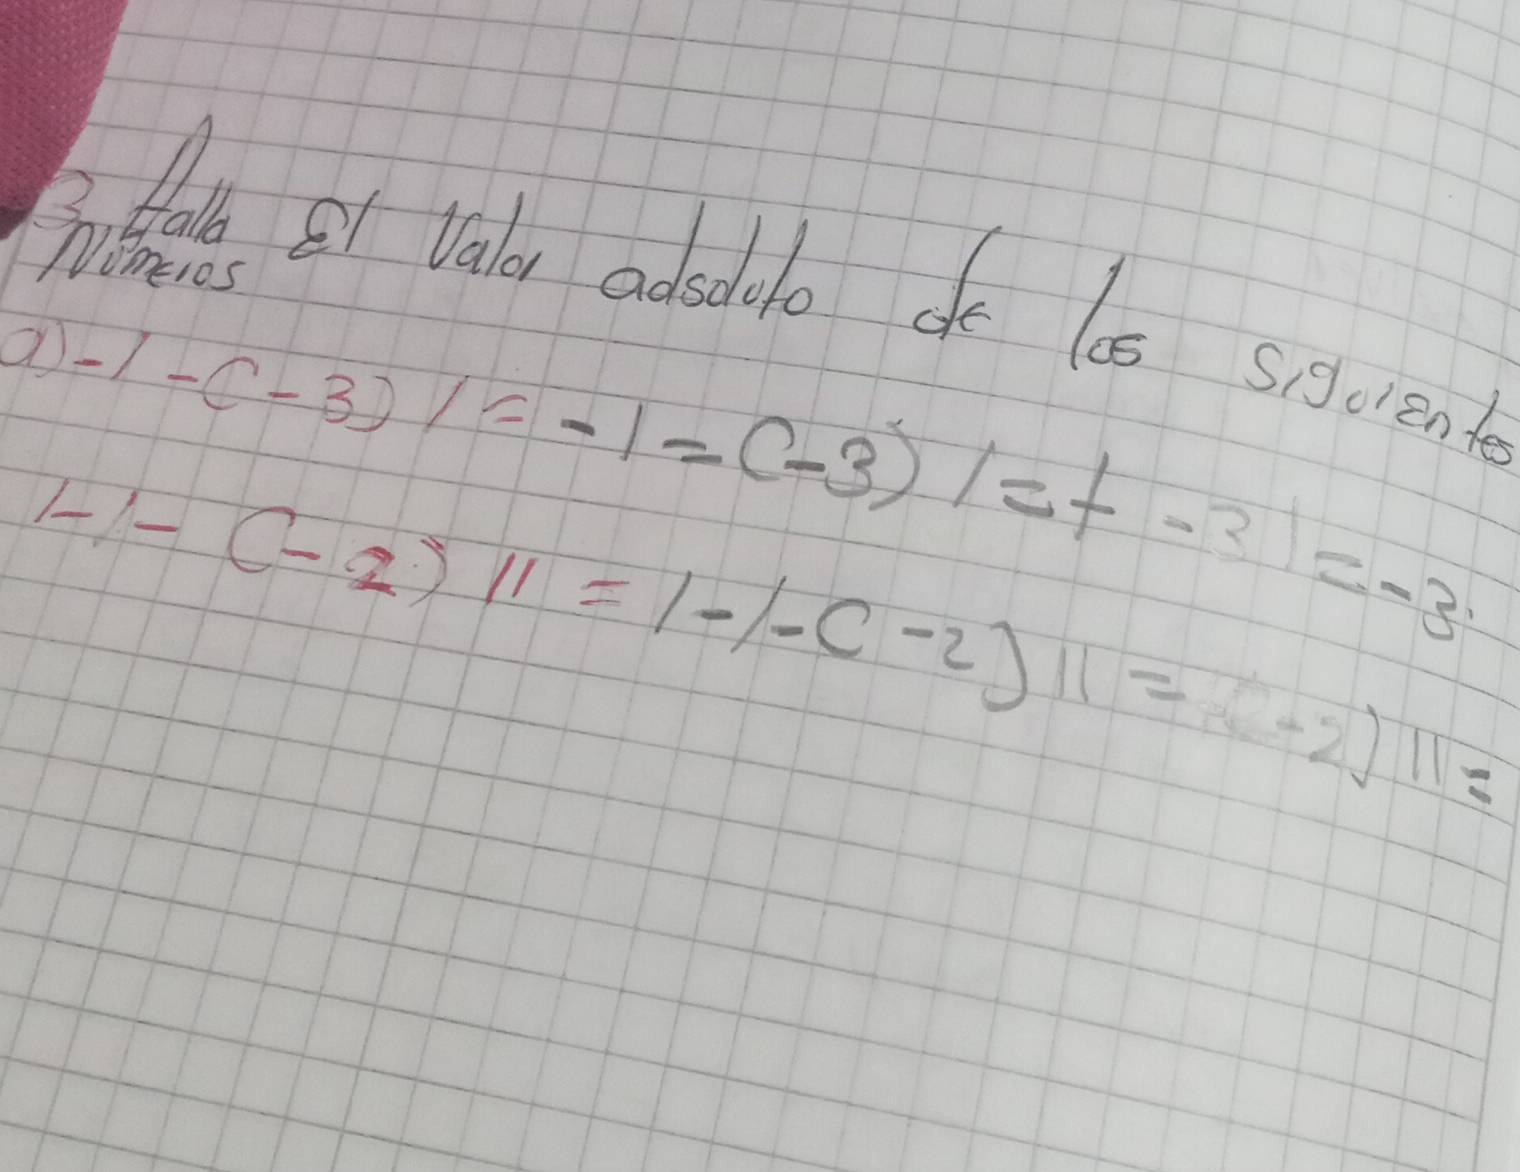 3 Halla El Valor adsoluto de los siguientes
Números
a) -| -(-3) | = -| = (-3) | = + -3 | = -3.
|-|- (-2) || = |-|-( -2) || = (-2) || =